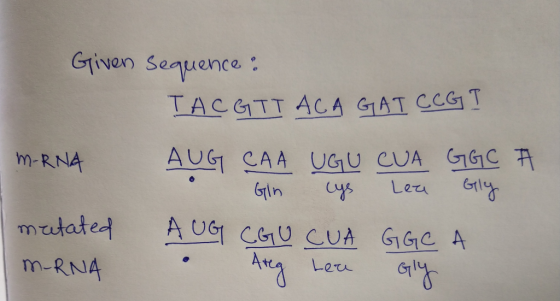 Given sequence:
TAC GTT ACA GAT CCGT
m-RNA AUG CAA UGU CUA GGC A
Gln Cys Leu Gly
mutated AUG CGU CUA GGC A
m-RNA Arg Leu Gly